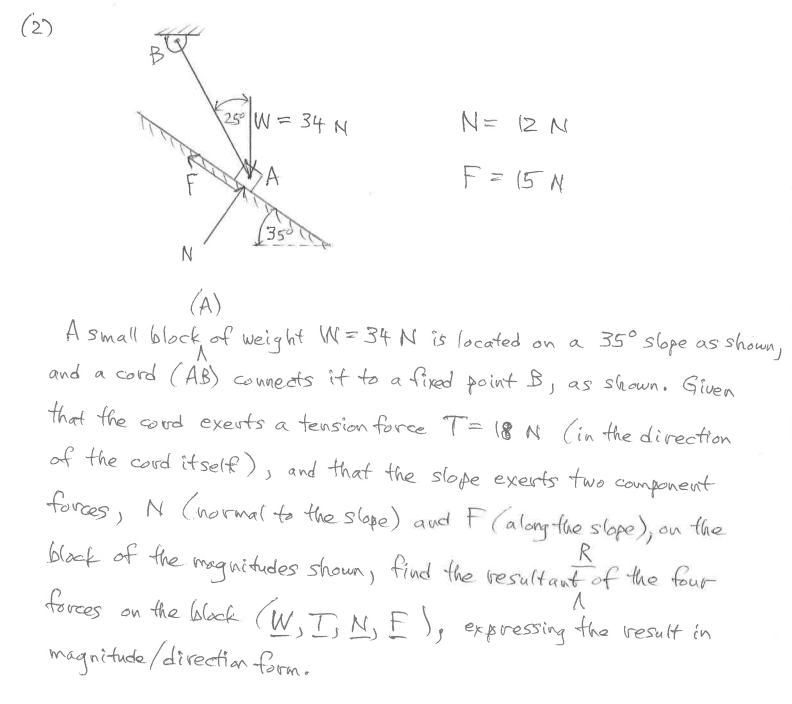 (2)
B
25° W = 34 N
N = 12 N
F = 15 N
F
A
35°
N
(A)
A small block ^ of weight W = 34 N is located on a 35° slope as shown,
and a cord (AB) connects it to a fixed point B, as shown. Given
that the cord exerts a tension force T = 18 N (in the direction
of the cord itself), and that the slope exerts two component
forces, N (normal to the slope) and F (along the slope), on the
R
block of the magnitudes shown, find the resultant ^ of the four
forces on the block (W, T, N, F), expressing the result in
magnitude/direction form.